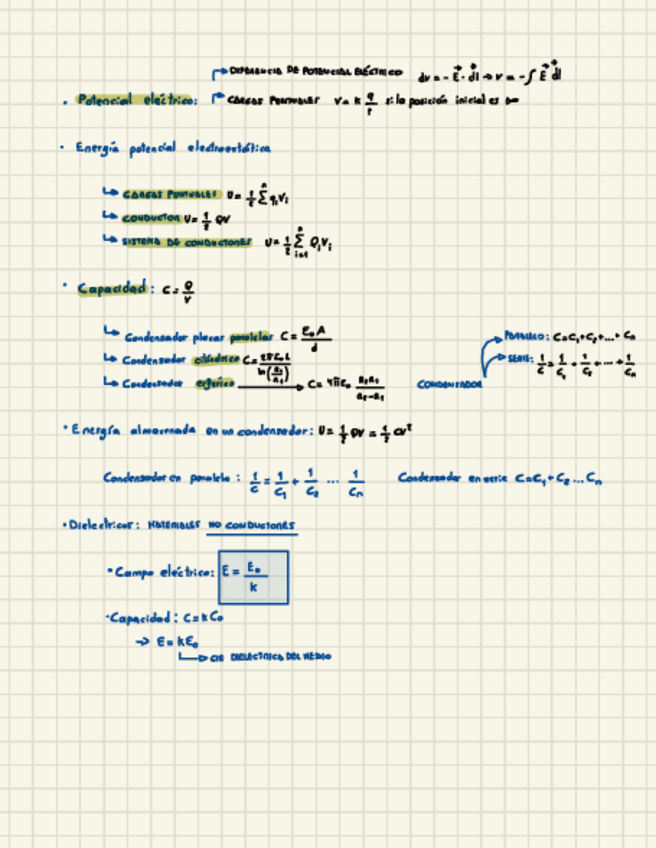 DIFERENCIA DE POTENCIAL ELÉCTRICO dv = - E · dl → v = - ∫ E dl
· Potencial eléctrico: CARGAS PUNTUALES V = k q/r si la posición inicial es ∞
· Energía potencial electrostática
↳ CARGAS PUNTUALES U = 1/2 Σ qᵢVᵢ
↳ CONDUCTOR U = 1/2 QV
↳ SISTEMA DE CONDUCTORES U = 1/2 Σ QᵢVᵢ
· Capacidad: C = Q/V
↳ Condensador placas paralelas C = ε₀A/d
PARALELO: C = C₁ + C₂ + ... + Cn
↳ Condensador cilíndrico C = 2πε₀L/ln(R₂/R₁)
SERIE: 1/C = 1/C₁ + 1/C₂ + ... + 1/Cn
↳ Condensador esférico → C = 4πε₀ R₂R₁/R₂-R₁
CONDENSADOR
· Energía almacenada en un condensador: U = 1/2 QV = 1/2 CV²
Condensador en paralelo: 1/C = 1/C₁ + 1/C₂ ... 1/Cn Condensador en serie C = C₁ + C₂ ... Cn
· Dielectricos: MATERIALES NO CONDUCTORES
· Campo eléctrico: E = E₀/k
· Capacidad: C = k C₀
→ E = k E₀
↳ CTE DIELECTRICA DEL MEDIO